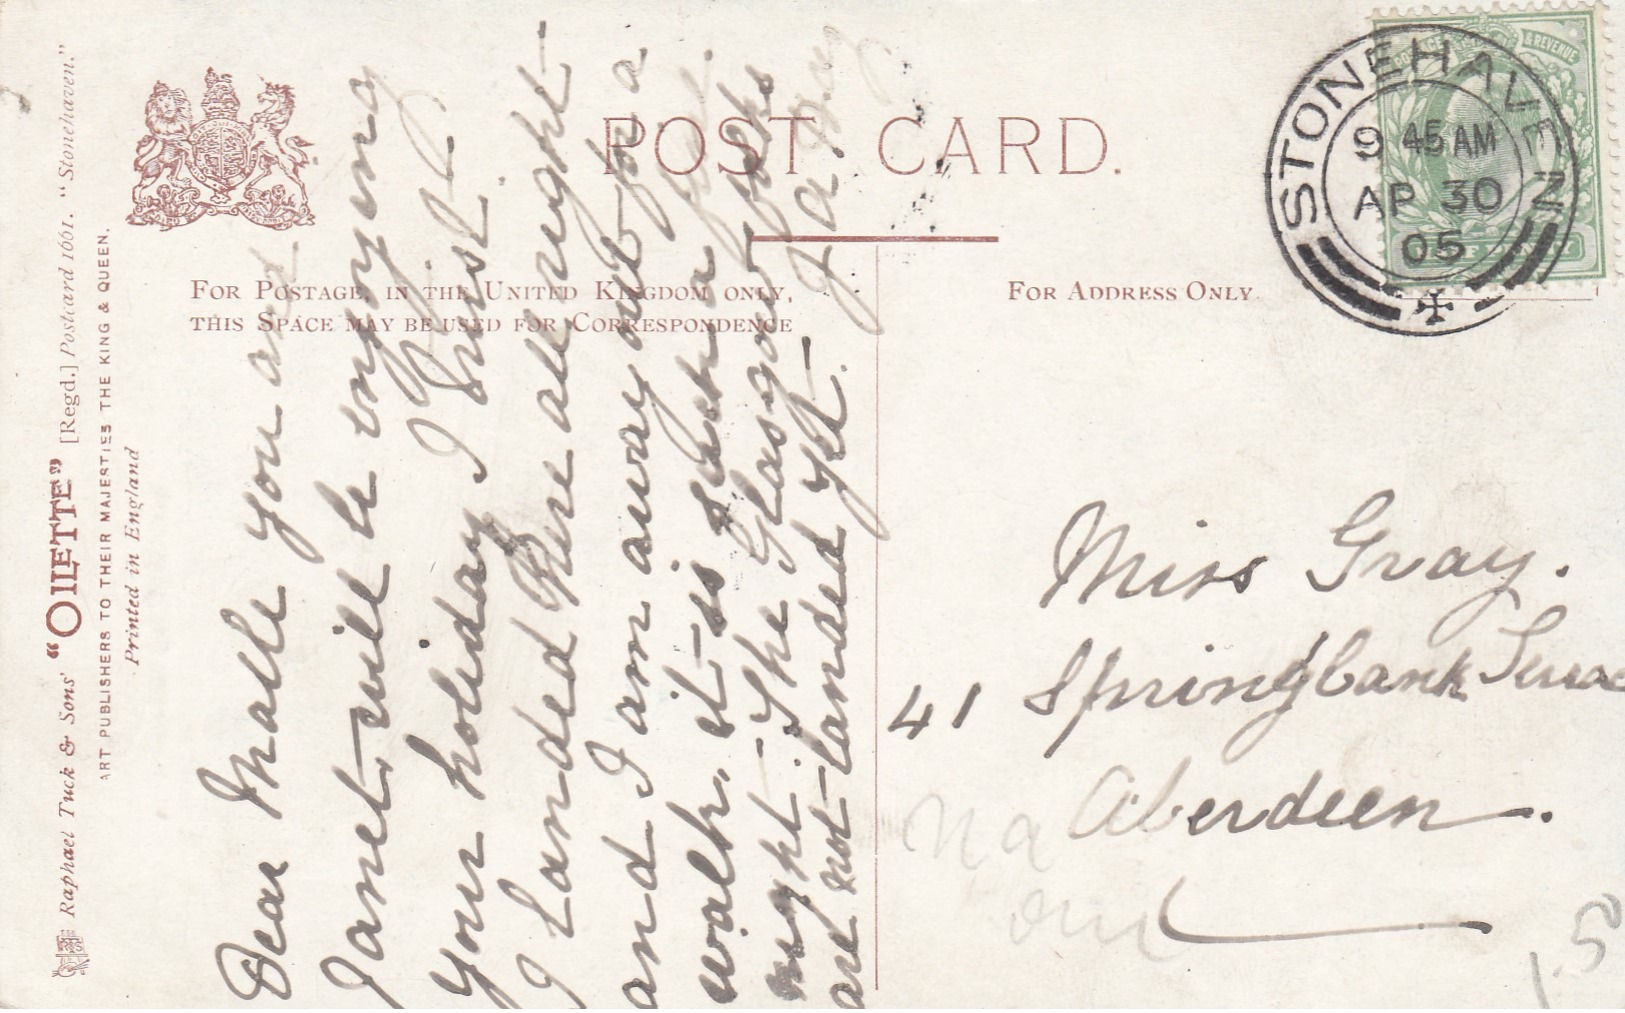 Raphael Tuck & Sons' "OILETTE" [Regd.] Postcard 1661. "Stonehaven."
ART PUBLISHERS TO THEIR MAJESTIES THE KING & QUEEN.
Printed in England
POST CARD.
FOR POSTAGE, IN THE UNITED KINGDOM ONLY,
THIS SPACE MAY BE USED FOR CORRESPONDENCE
FOR ADDRESS ONLY
& REVENUE
STONEHAVEN
9 45 AM
AP 30
05
Dear Maller you and
Janet will be enjoying
your holiday I trust.
I landed here all right
and I am away out for a
walk. it is such a
night. The Glasgow folks
are not landed yet.
J a Gray
Miss Gray.
41 Springbank Terrace
Aberdeen.
1.50